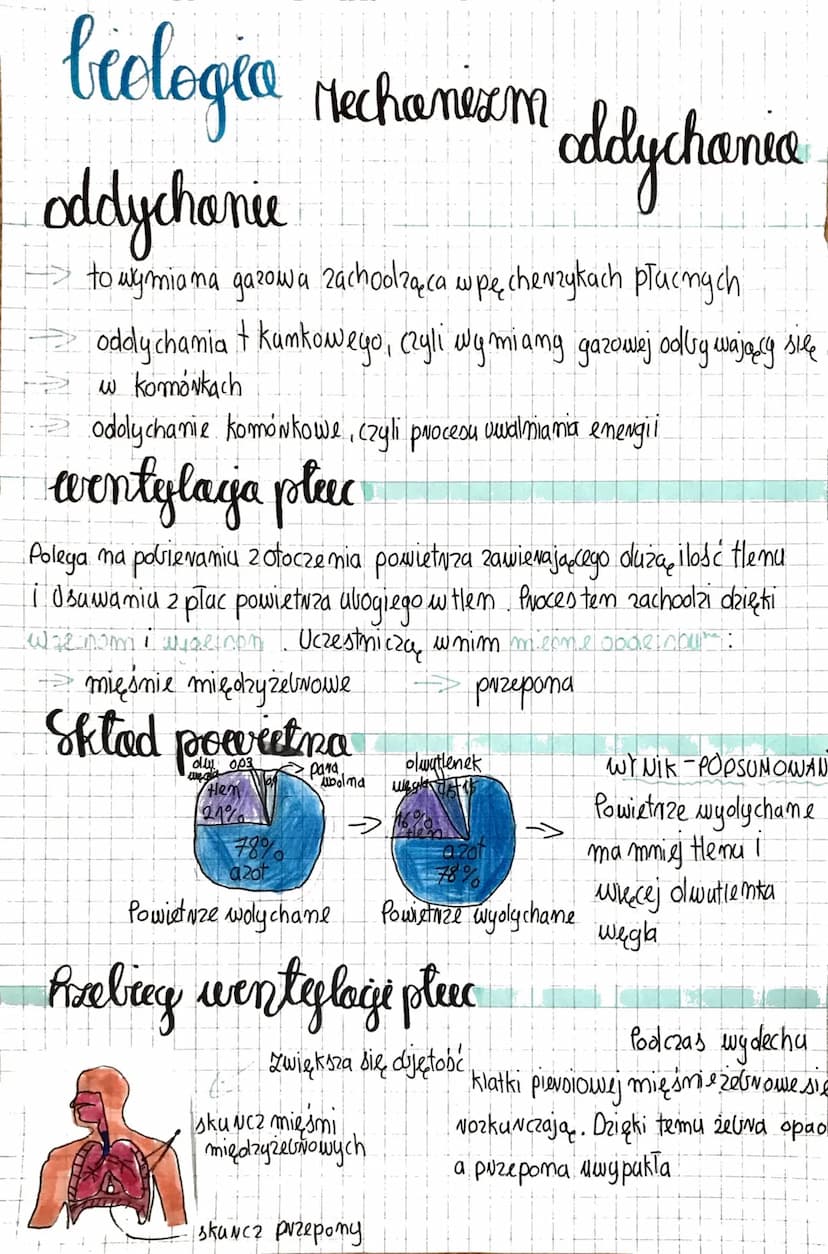 biologia
Mechanizm
oddychania
oddychanie
→ to wymiana gazowa zachodząca w pęcherzykach płucnych
→ oddychania tkankowego, czyli wymiany gazowej odbywający się
→ w komórkach
→ oddychanie komórkowe, czyli procesu uwalniania energii
wentylacja płuc
Polega na pobieraniu z otoczenia powietrza zawierającego dużą ilość tlenu
i usuwaniu z płuc powietrza ubogiego w tlen. Proces ten zachodzi dzięki
i . Uczestniczą w nim :
→ mięśnie międzyżebrowe → przepona
Skład powietrza
tlen
21%
78%
azot
para
wodna
Powietrze wdychane
dwutlenek
węgla
16%
tlen
azot
78%
Powietrze wydychane
WYNIK-PODSUMOWAN
Powietrze wydychane
ma mniej tlenu i
więcej dwutlenka
węgla
Przebieg wentylacji płuc
zwiększa się objętość
skurcz mięśni
międzyżebrowych
skurcz przepony
Podczas wydechu
klatki piersiowej mięśnie żebrowe się
rozkurczają. Dzięki temu żebra opad
a przepona uwypukla